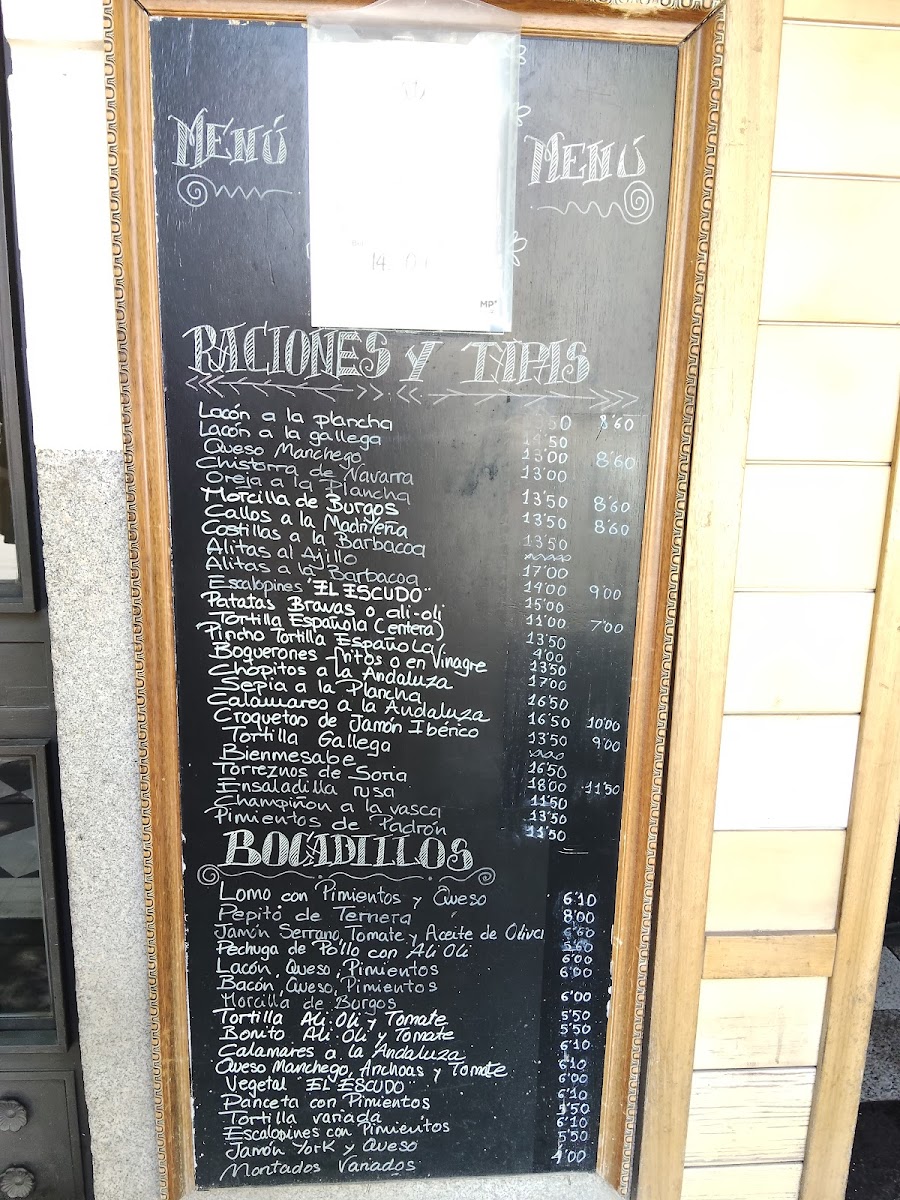 MENÚ
MENÚ
MP
RACIONES Y TAPAS
Lacón a la plancha 8'60
Lacón a la gallega 14'50
Queso Manchego 13'00 8'60
Chistorra de Navarra 13'00
Oreja a la Plancha 13'50 8'60
Morcilla de Burgos 13'50 8'60
Callos a la Madrileña 13'50
Costillas a la Barbacoa
Alitas al Ajillo 17'00
Alitas a la Barbacoa 14'00 9'00
Escalopines "EL ESCUDO" 15'00
Patatas Bravas o ali-oli 11'00 7'00
Tortilla Española (entera) 13'50
Pincho Tortilla Española 4'00
Boquerones fritos o en Vinagre 13'50
Chopitos a la Andaluza 17'00
Sepia a la Plancha 16'50
Calamares a la Andaluza 16'50 10'00
Croquetas de Jamón Ibérico 13'50 9'00
Tortilla Gallega
Bienmesabe 16'50
Torreznos de Soria 18'00 11'50
Ensaladilla rusa 11'50
Champiñon a la vasca 13'50
Pimientos de Padrón 11'50
BOCADILLOS
Lomo con Pimientos y Queso 6'10
Pepito de Ternera 8'00
Jamón Serrano, Tomate y Aceite de Oliva 6'60
Pechuga de Pollo con Ali Oli
Lacón, Queso, Pimientos 6'00
Bacón, Queso, Pimientos 6'00
Morcilla de Burgos 6'00
Tortilla Ali Oli y Tomate 5'50
Bonito Ali Oli y Tomate 5'50
Calamares a la Andaluza 6'10
Queso Manchego, Anchoas y Tomate 6'10
Vegetal "EL ESCUDO" 6'00
Panceta con Pimientos 6'10
Tortilla variada 5'50
Escalopines con Pimientos 6'10
Jamón York y Queso 5'50
Montados Variados 4'00